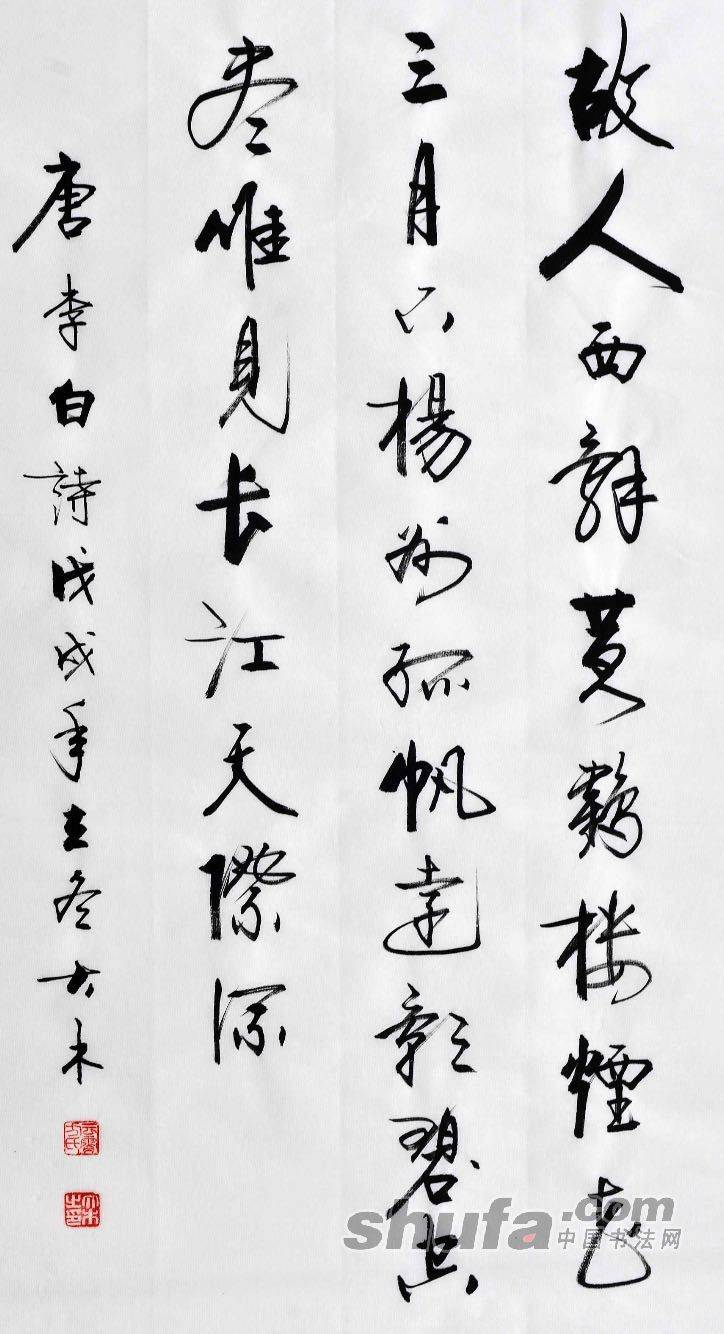 故人西辞黄鶴楼煙花
三月下楊州孤帆遠影碧空
尽唯見长江天際流
唐李白詩戊戌年立冬大木
shufa.com
中国书法网